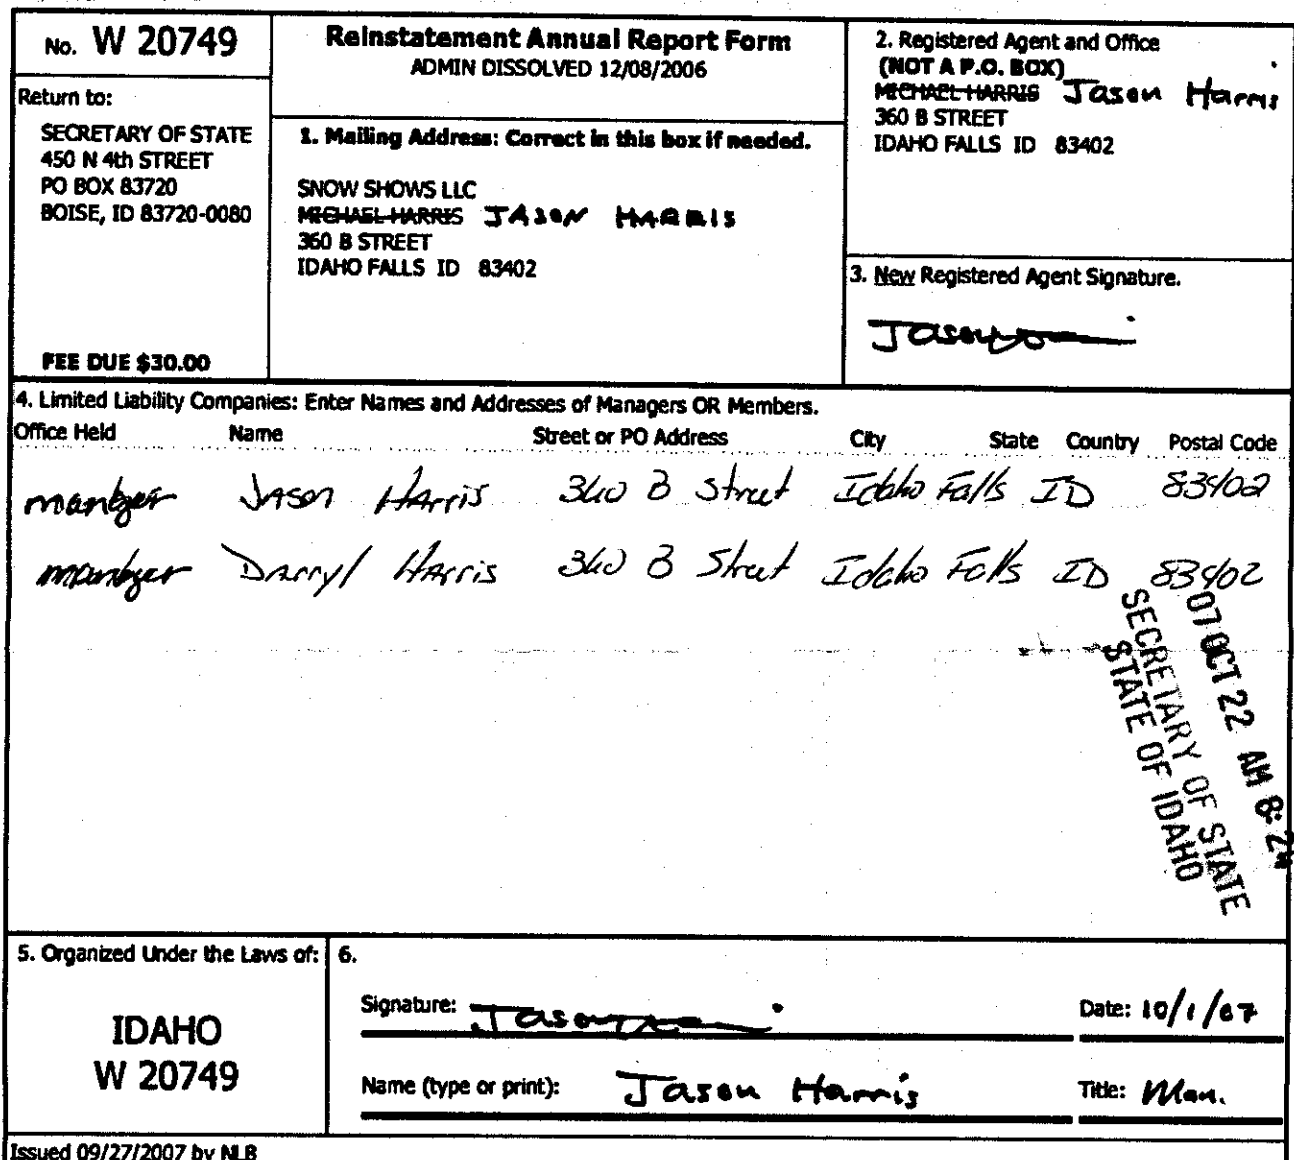 No. W 20749
Return to:
SECRETARY OF STATE
450 N 4th STREET
PO BOX 83720
BOISE, ID 83720-0080
FEE DUE $30.00
Reinstatement Annual Report Form
ADMIN DISSOLVED 12/08/2006
1. Mailing Address: Correct in this box if needed.
SNOW SHOWS LLC
MICHAEL HARRIS JASON HARRIS
360 B STREET
IDAHO FALLS ID 83402
2. Registered Agent and Office
(NOT A P.O. BOX)
MICHAEL HARRIS Jason Harris
360 B STREET
IDAHO FALLS ID 83402
3. New Registered Agent Signature.
Jason
4. Limited Liability Companies: Enter Names and Addresses of Managers OR Members.
Office Held Name Street or PO Address City State Country Postal Code
manager Jason Harris 360 B Street Idaho Falls ID 83402
manager Darryl Harris 360 B Street Idaho Falls ID 83402
07 OCT 22 AM 8:24
SECRETARY OF STATE
STATE OF IDAHO
5. Organized Under the Laws of:
IDAHO
W 20749
6.
Signature: Jason
Date: 10/1/07
Name (type or print): Jason Harris
Title: Man.
Issued 09/27/2007 by NLB